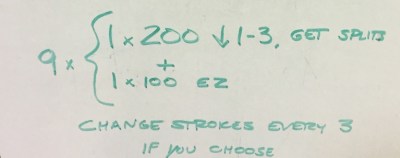 9 x { 1 x 200 ↓ 1-3, GET SPLITS
+
1 x 100 EZ
CHANGE STROKES EVERY 3
IF YOU CHOOSE